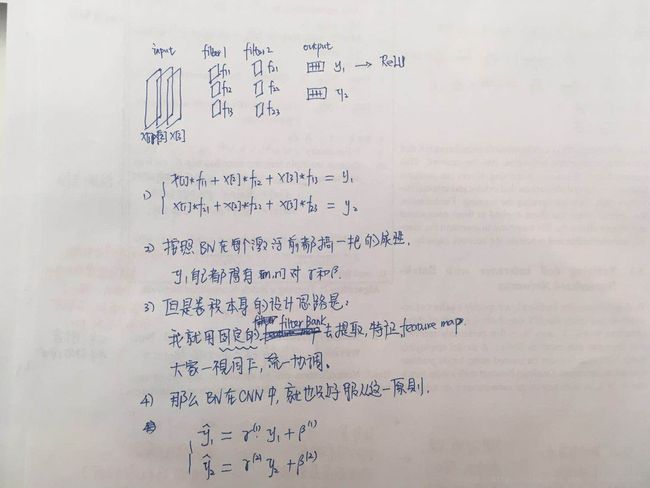 input filter1 filter2 output
f11 f21 y1 → ReLU
f12 f22 y2
f13 f23
X[1] X[2] X[3]
1) { X[1]*f11 + X[2]*f12 + X[3]*f13 = y1
X[1]*f21 + X[2]*f22 + X[3]*f23 = y2
2) 按照BN在每个激活前都搞一把的原理,
y1自己都得有 m·n 对 γ和β.
3) 但是卷积本身的设计思路是:
我就用固定的 filter Bank 去提取,特征,feature map.
大家一视同仁,统一协调。
4) 那么BN在CNN中,就也只好服从这一原则.
{ ŷ1 = γ(1) y1 + β(1)
ŷ2 = γ(2) y2 + β(2)